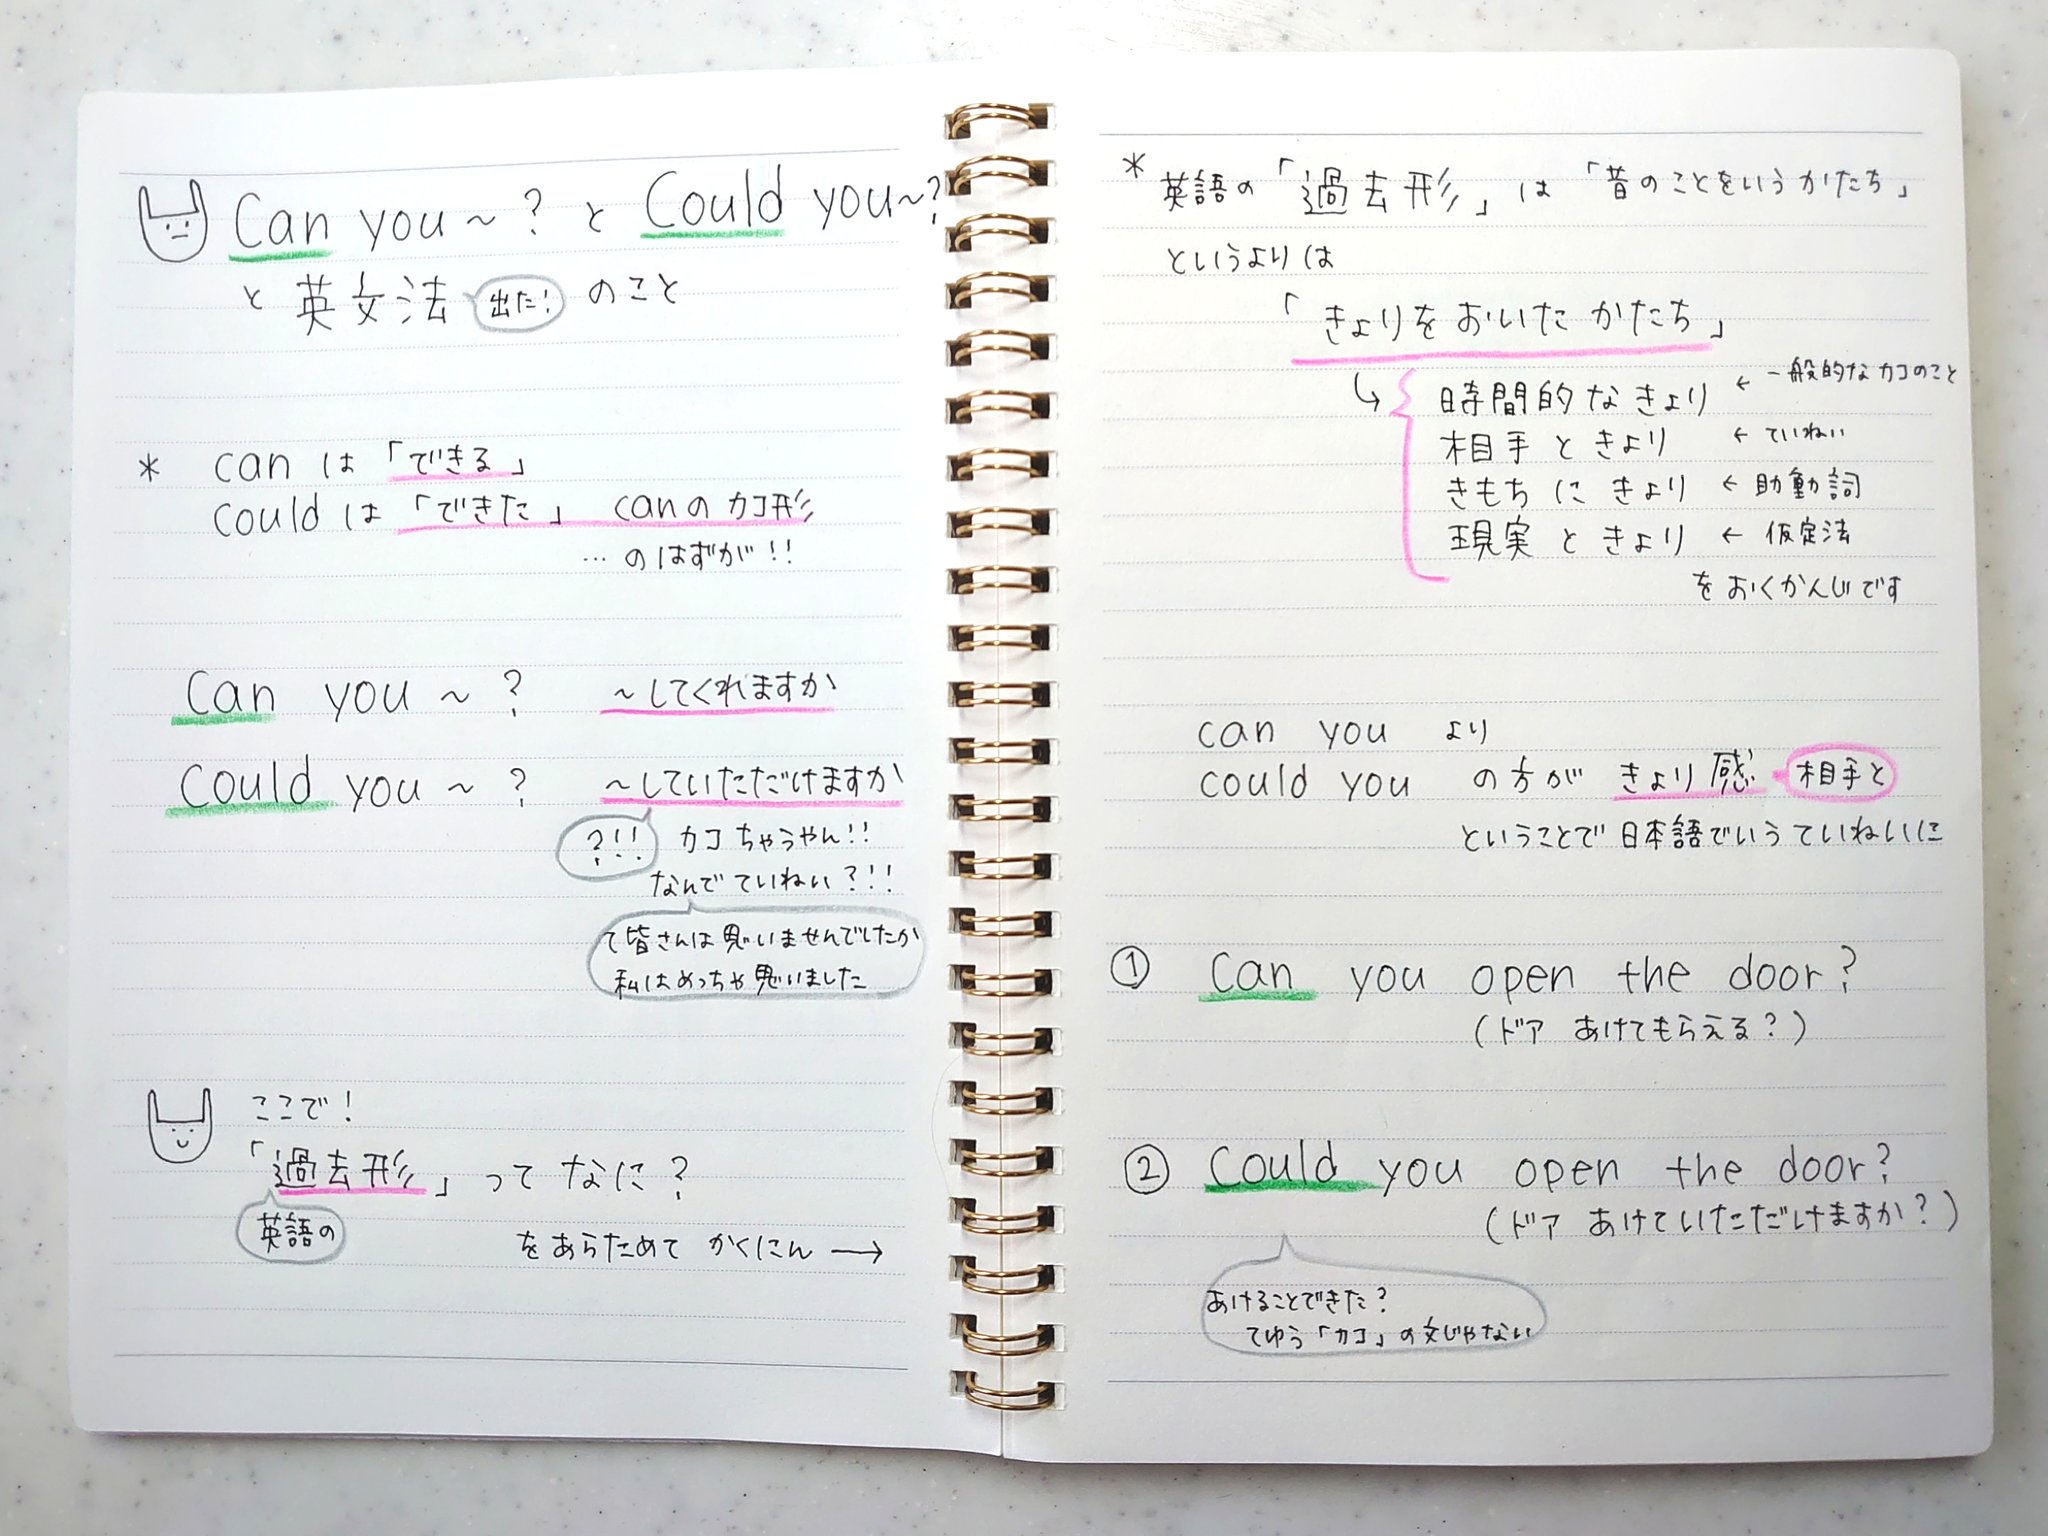 Can you～? と Could you～?
と 英文法 出た! のこと
* can は「できる」
could は「できた」 canのカコ形
…のはずが!!
Can you ～ ? ～してくれますか
Could you ～ ? ～していただけますか
?!! カコちゃうやん!!
なんでていねい?!!
て皆さんは思いませんでしたか
私はめっちゃ思いました
ここで!
「過去形」ってなに?
英語の
をあらためて かくにん →
* 英語の「過去形」は「昔のことをいうかたち」
というよりは
「きょりをおいたかたち」
↳ 時間的なきょり ← 一般的なカコのこと
相手ときょり ← ていねい
きもちにきょり ← 助動詞
現実ときょり ← 仮定法
をおくかんじです
can you より
could you の方が きょり感 相手と
ということで日本語でいうていねいに
① Can you open the door?
(ドア あけてもらえる?)
② Could you open the door?
(ドア あけていただけますか?)
あけることできた?
てゆう「カコ」の文じゃない